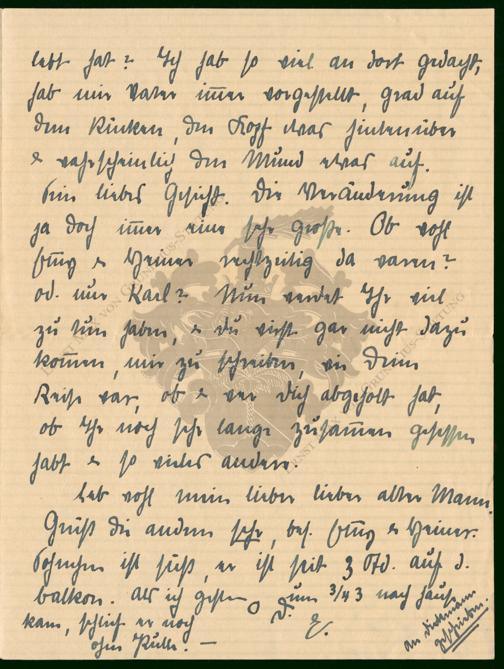 lebt hat? Ich hab so viel an dort gedacht,
hab mir Vater im̅er vorgestellt, grad auf
dem Rücken, den Kopf etwas hintenüber
& wahrscheinlich den Mund etwas auf.
Sein liebes Gesicht. Die Veränderung ist
ja doch im̅er eine sehr große. Ob wohl
& Heiner rechtzeitig da waren?
od. nur Karl? Nun werdet Ihr viel
zu tun haben, & du wirst gar nicht dazu
kom̅en, mir zu schreiben, wie Deine
Reise war, ob & wer dich abgeholt hat,
ob Ihr noch sehr lange zusam̅en gesessen
habt & so vieles andere.
Leb wohl mein lieber lieber alter Mann.
Grüß die andern sehr, bes. & Heiner.
Söhnchen ist süß, er ist seit 3 Std. auf d.
balkon. Als ich gestern um 3/4 3 nach haus
kam, schlief er noch
ohne Pulle. —
D. E.
an Dickmann
geschrieben.